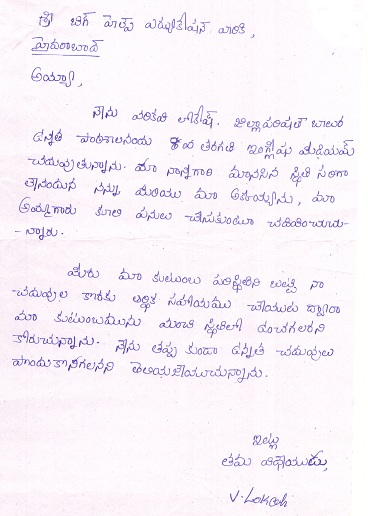 శ్రీ బిగ్ హెల్ప్ ఎడ్యుకేషన్ వారికి,
హైదరాబాద్
అయ్యా,
నేను వరికుటి లోకేష్. జిల్లాపరిషత్ బాలుర
ఉన్నత పాఠశాలనందు 8వ తరగతి ఇంగ్లీషు మీడియమ్
చదువుతున్నాను. మా నాన్నగారి మానసిన స్థితి సరిగా
లేనందున నన్ను మరియు మా అక్కయ్యను, మా
అమ్మగారు కూలి పనులు చేసుకుంటూ చదివించుచు-
న్నారు.
మీరు మా కుటుంబ పరిస్థితిని బట్టి నా
చదువుల కొరకు ఆర్థిక సహాయము చేయుట ద్వారా
మా కుటుంబమును మంచి స్థితిలో ఉంచగలరని
కోరుచున్నాను. నేను తప్పకుండా ఉన్నత చదువులు
పొందుకొనగలనని తెలియజేయుచున్నాను.
ఇట్లు
తమ విధేయుడు,
V. Lokesh